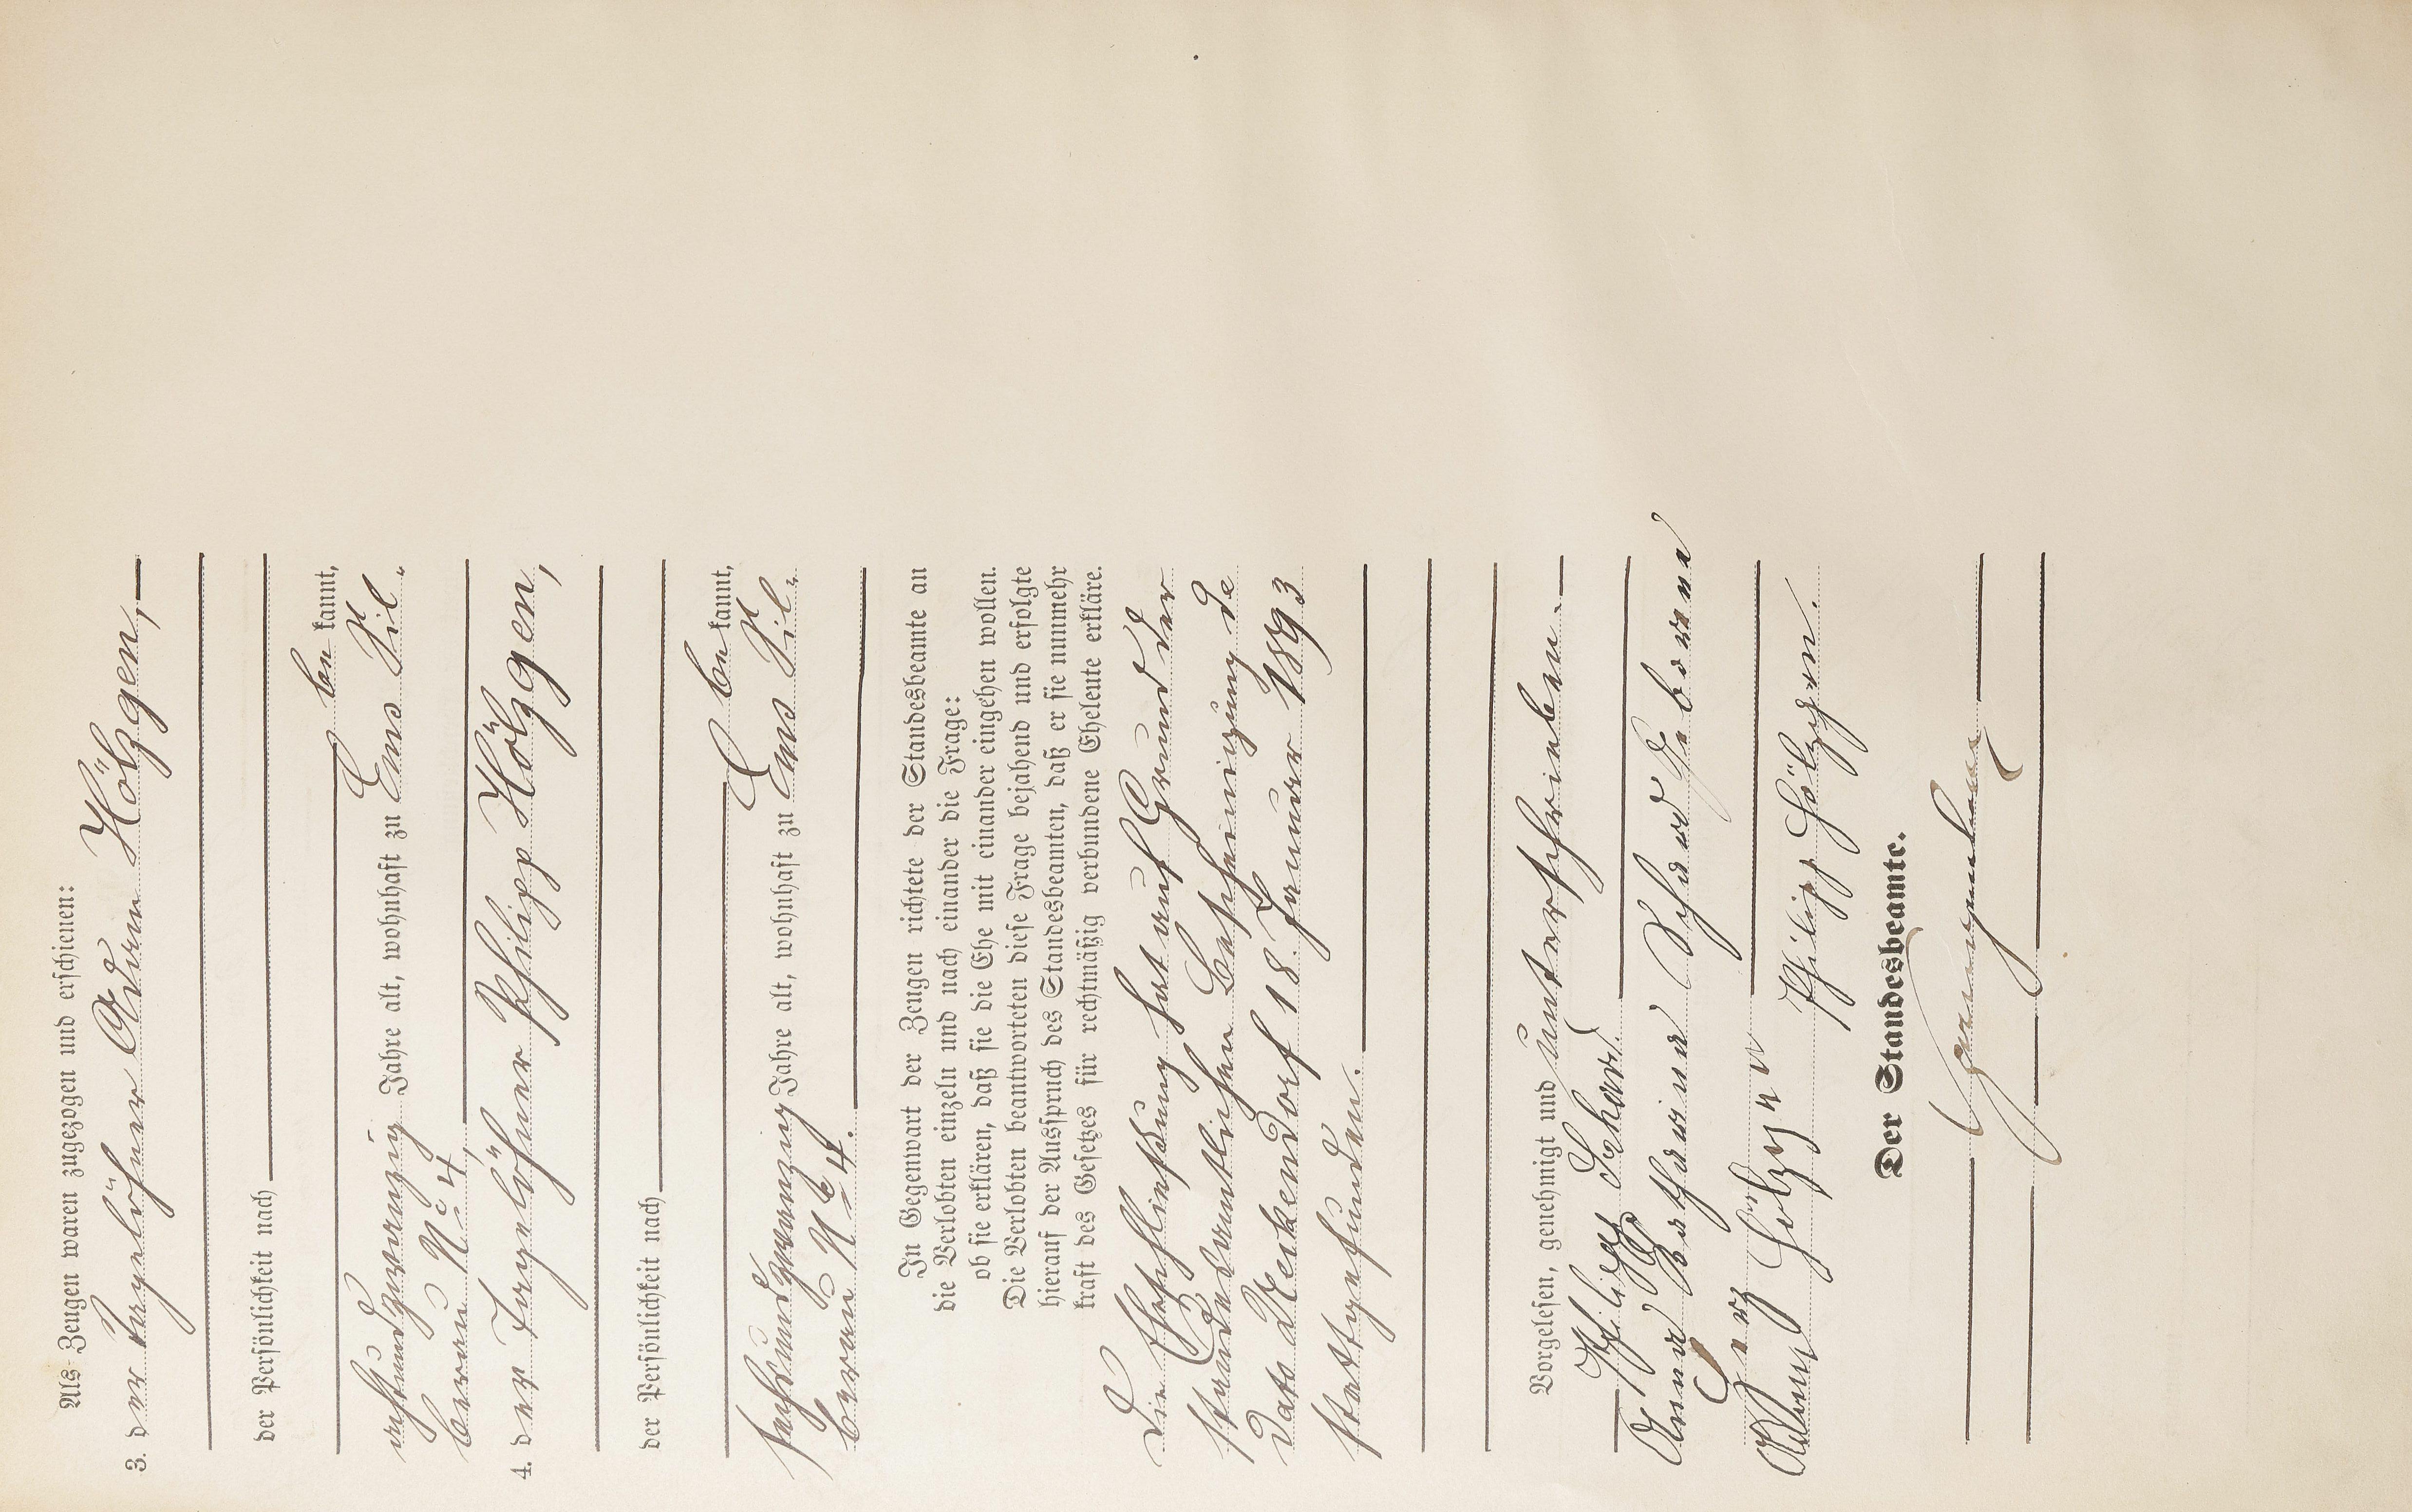 Als Zeugen waren zugezogen und erschienen:
3. der Tagelöhner Adam Hölzgen,
der Persönlichkeit nach
be kannt,
achtundzwanzig Jahre alt, wohnhaft zu Ems Sil-
berau No 4,
4. der Tagelöhner Philipp Hölzgen,
der Persönlichkeit nach
be kannt,
sechsundzwanzig Jahre alt, wohnhaft zu Ems Sil-
berau No 4.
In Gegenwart der Zeugen richtete der Standesbeamte an
die Verlobten einzeln und nach einander die Frage:
ob sie erklären, daß sie die Ehe mit einander eingehen wollen.
Die Verlobten beantworteten diese Frage bejahend und erfolgte
hierauf der Ausspruch des Standesbeamten, daß er sie nunmehr
kraft des Gesetzes für rechtmäßig verbundene Eheleute erkläre.
Die Eheschließung hat auf Grund der
standesamtlichen Bescheinigung de
dato Weckendorf 18. Januar 1893
stattgefunden.
Vorgelesen, genehmigt und unterschrieben.
Philipp Schard.
Anna Katharina Schard Geborene
Herz
Adam Hölzgen Philipp Hölzgen.
Der Standesbeamte.